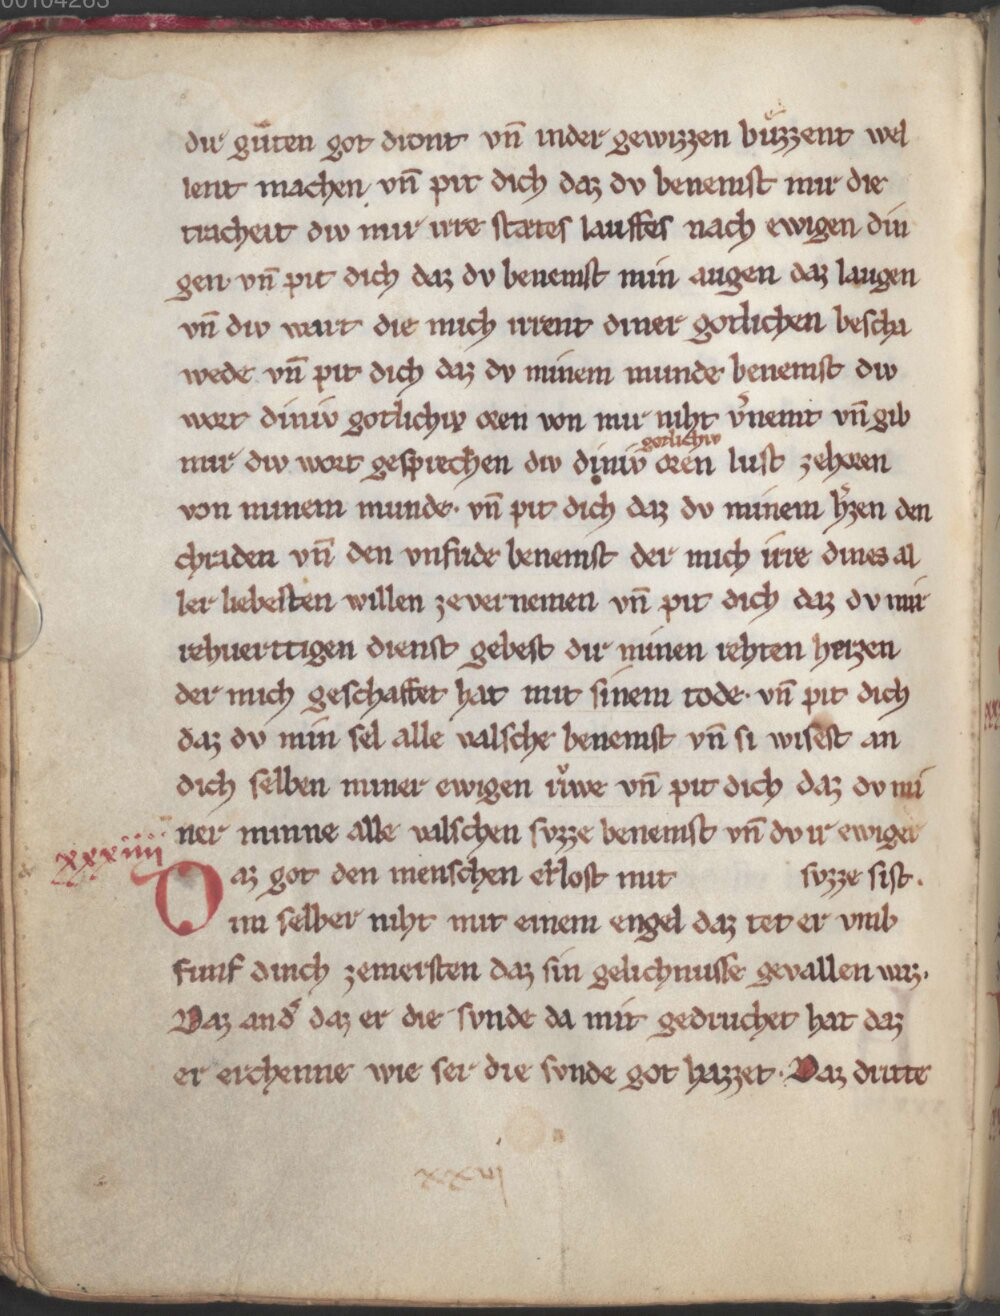 00104263
dir guͤten got divnt vn̄ inder gewizzen buͤzzent wel
lent machen vn̄ pit dich daz dv benemst mir die
tracheit div mir irre stætes lauffes nach ewigen din
gen vn̄ pit dich daz dv benemst min augen daz laugen
vn̄ div wart die mich irrent diner gotlichen bescha
wede vn̄ pit dich daz dv minem munde benemst div
wort diniv gotlichiv oren von mir niht v̓nemt vn̄ gib
gotlichiv
mir div wort gesprechen div diniv oren lust zehoren
von minem munde· vn̄ pit dich daz dv minem h̓zen den
chraden vn̄ den vnfride benemst der mich irre dines al
ler liebesten willen zevernemen vn̄ pit dich daz dv mir
rehuerttigen dienst gebest dir minen rehten herzen
der mich geschaffet hat mit sinem tode· vn̄ pit dich
daz dv min sel alle valsche benemst vn̄ si wisest an
dich selben miner ewigen růwe vn̄ pit dich daz dv mi
ner minne alle valschen svzze benemst vn̄ dv ir ewiger
xxxiiii
Daz got den menschen erlost mit svzze sist.
im selber niht mit einem engel daz tet er vmb
funf dinch zemersten daz sin gelichnusse gevallen waz.
Daz and̓ daz er die svnde da mit gedruchet hat daz
er erchenne wie ser die svnde got hazzet· Daz dritte
xxvi